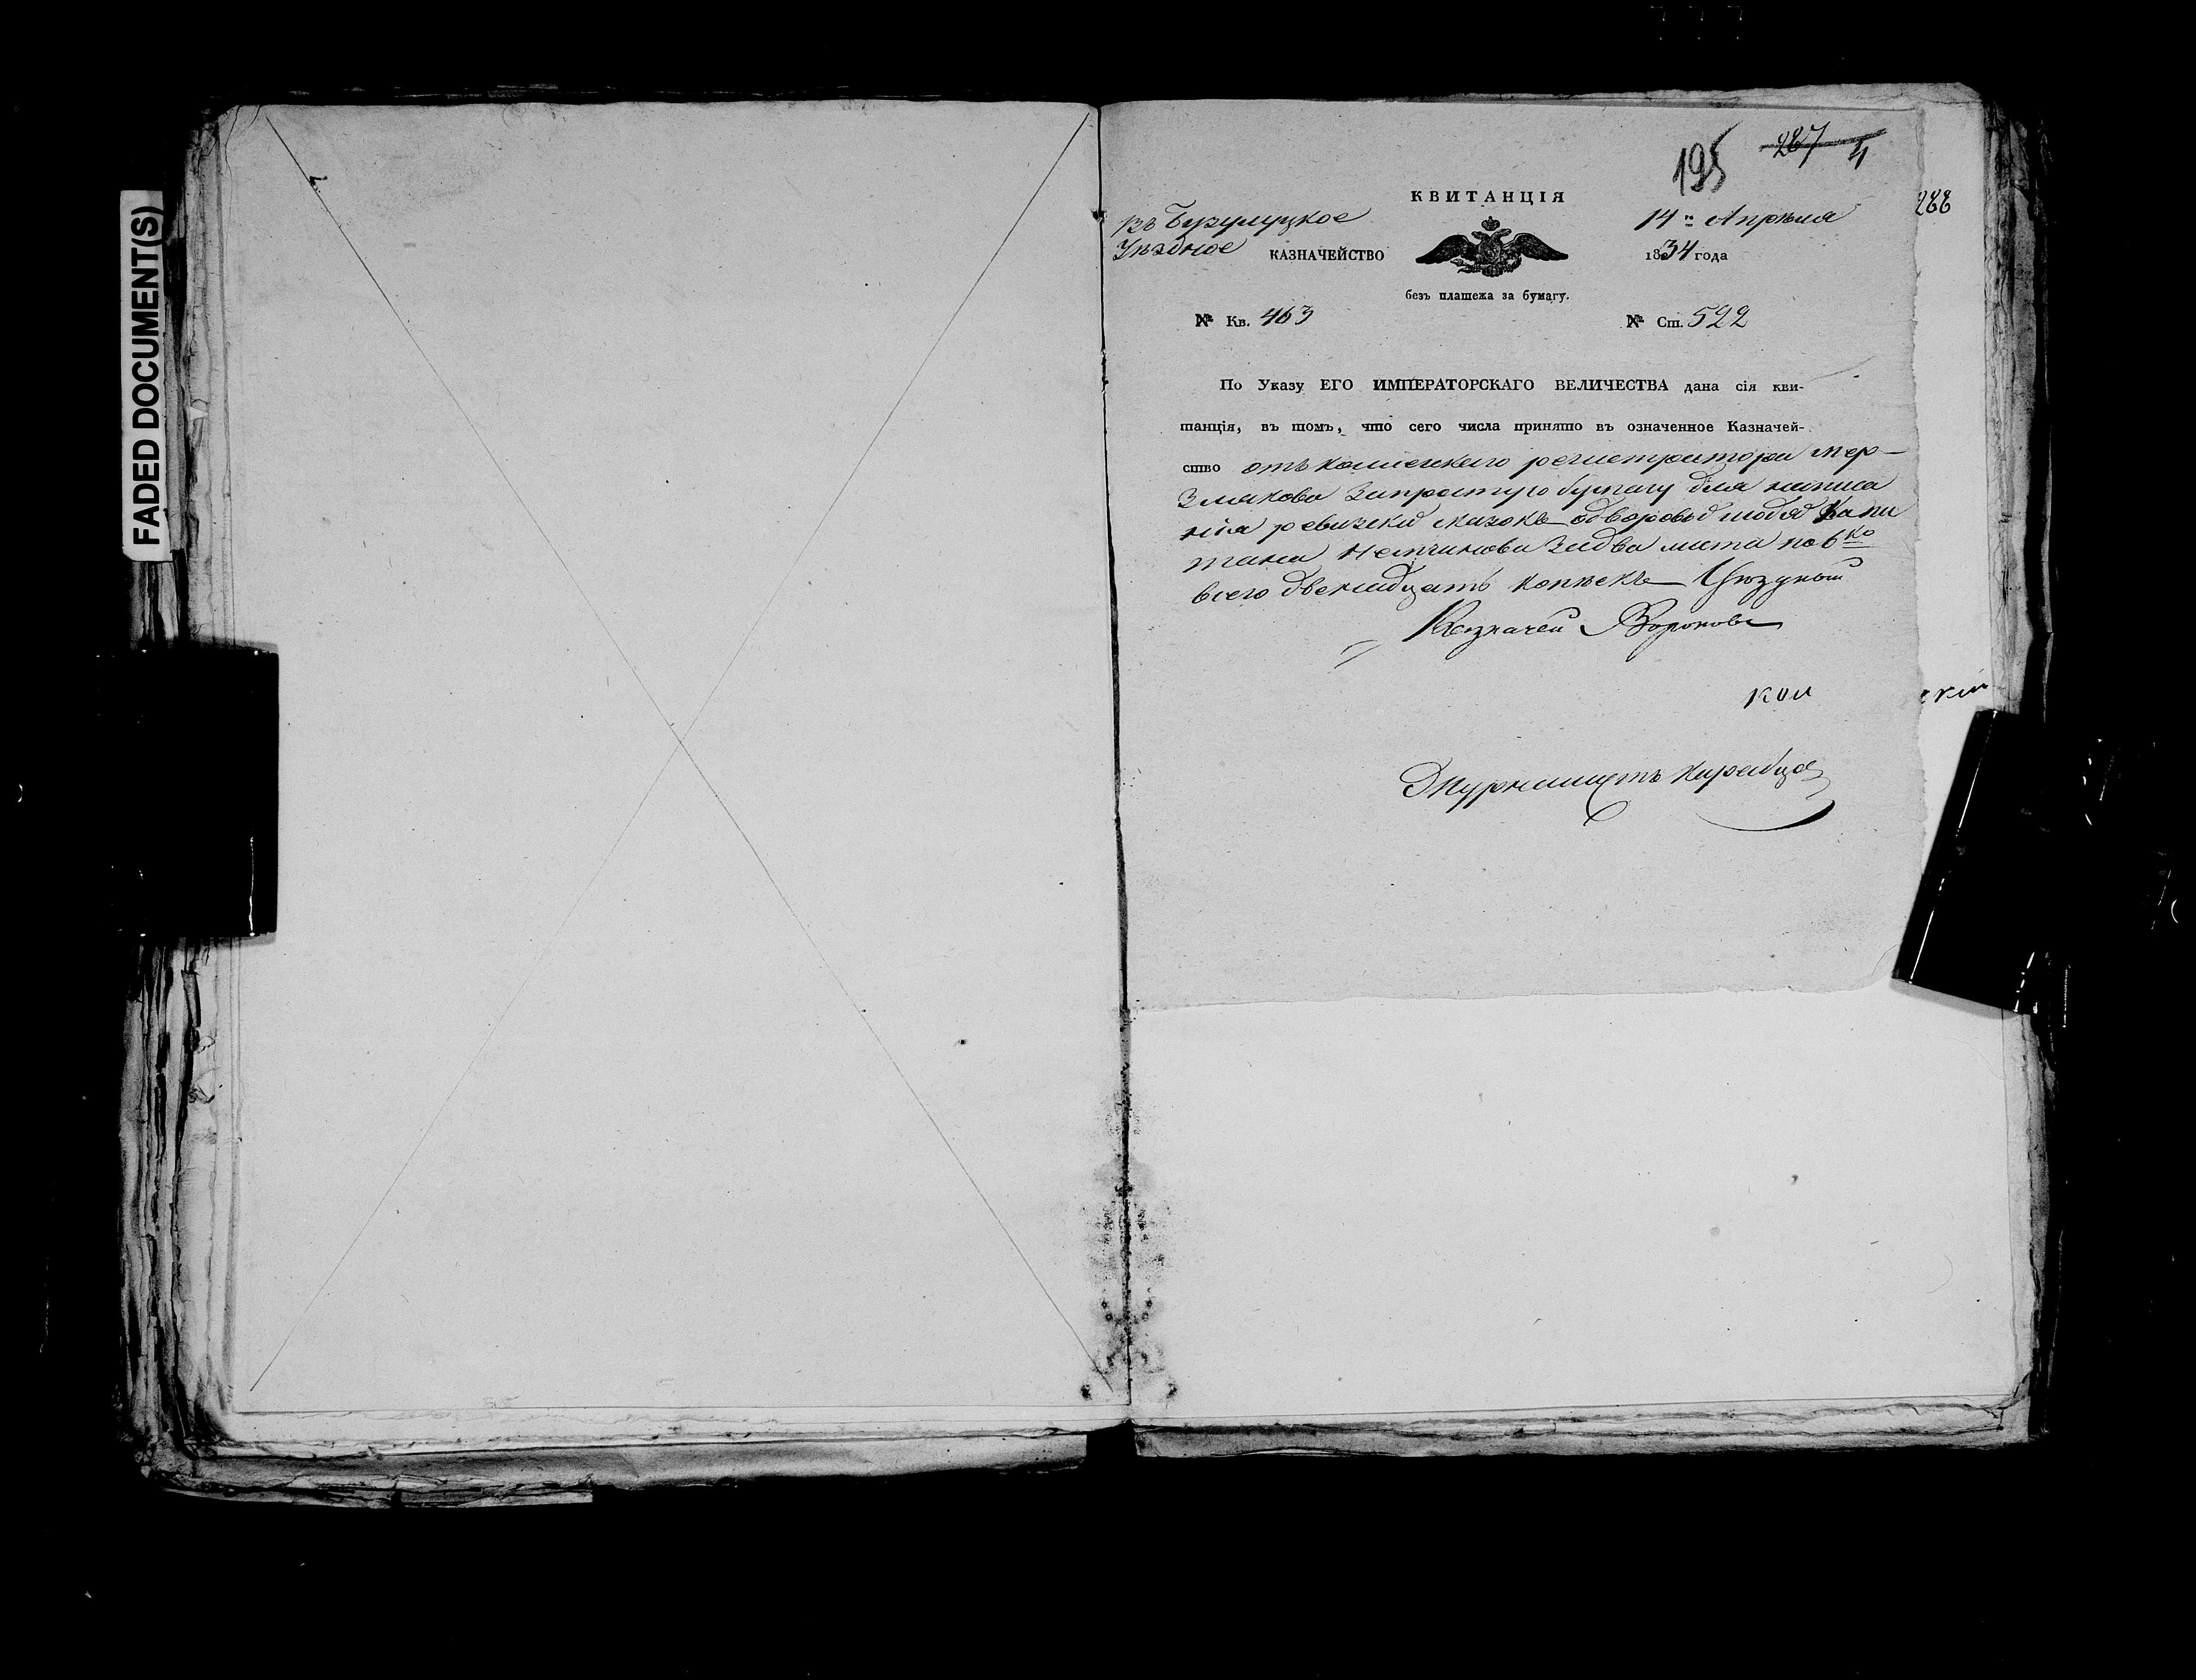 FADED DOCUMENT(S)
195 287 4
288
КВИТАНЦІЯ
въ Бузулуцкое
Уѣздное КАЗНАЧЕЙСТВО
14 Апрѣля
1834 года
безъ платежа за бумагу.
№ Кв. 463
№ Ст. 522
По Указу ЕГО ИМПЕРАТОРСКАГО ВЕЛИЧЕСТВА дана сія кви-
танція, въ томъ, что сего числа принято въ означенное Казначей-
ство отъ колежскаго регистратора Мер-
злякова запростую бумагу для написа
нія ревизски сказокъ одворовы людя Капи
тана за два листа по 6 ко
всего двенадцать копѣекъ Уѣздный
Казначей Воронов
кол
ский
Журналистъ